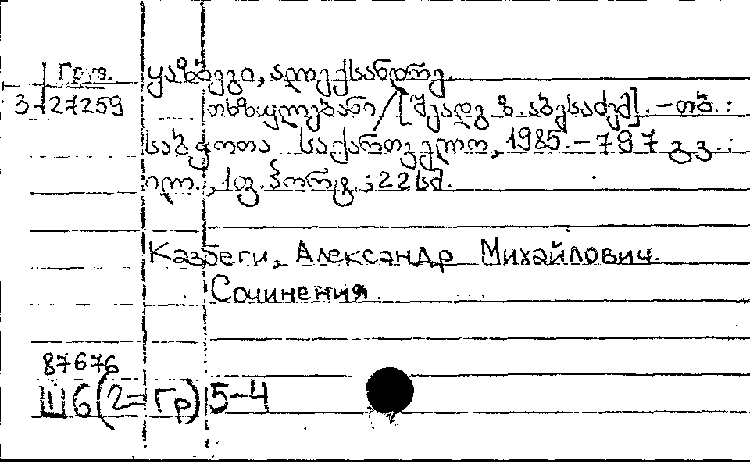 Груз. ყაზბეგი, ალექსანდრე.
3-27259 თხზულებანი / [შეადგ. ზ. აბესაძემ]. - თბ. :
საბჭოთა საქართველო, 1985. - 797 გვ. :
ილ., 1 ფ. პორტ. ; 22 სმ.
Казбеги, Александр Михайлович
Сочинения
87676
Ш6(2=Гр)5-4